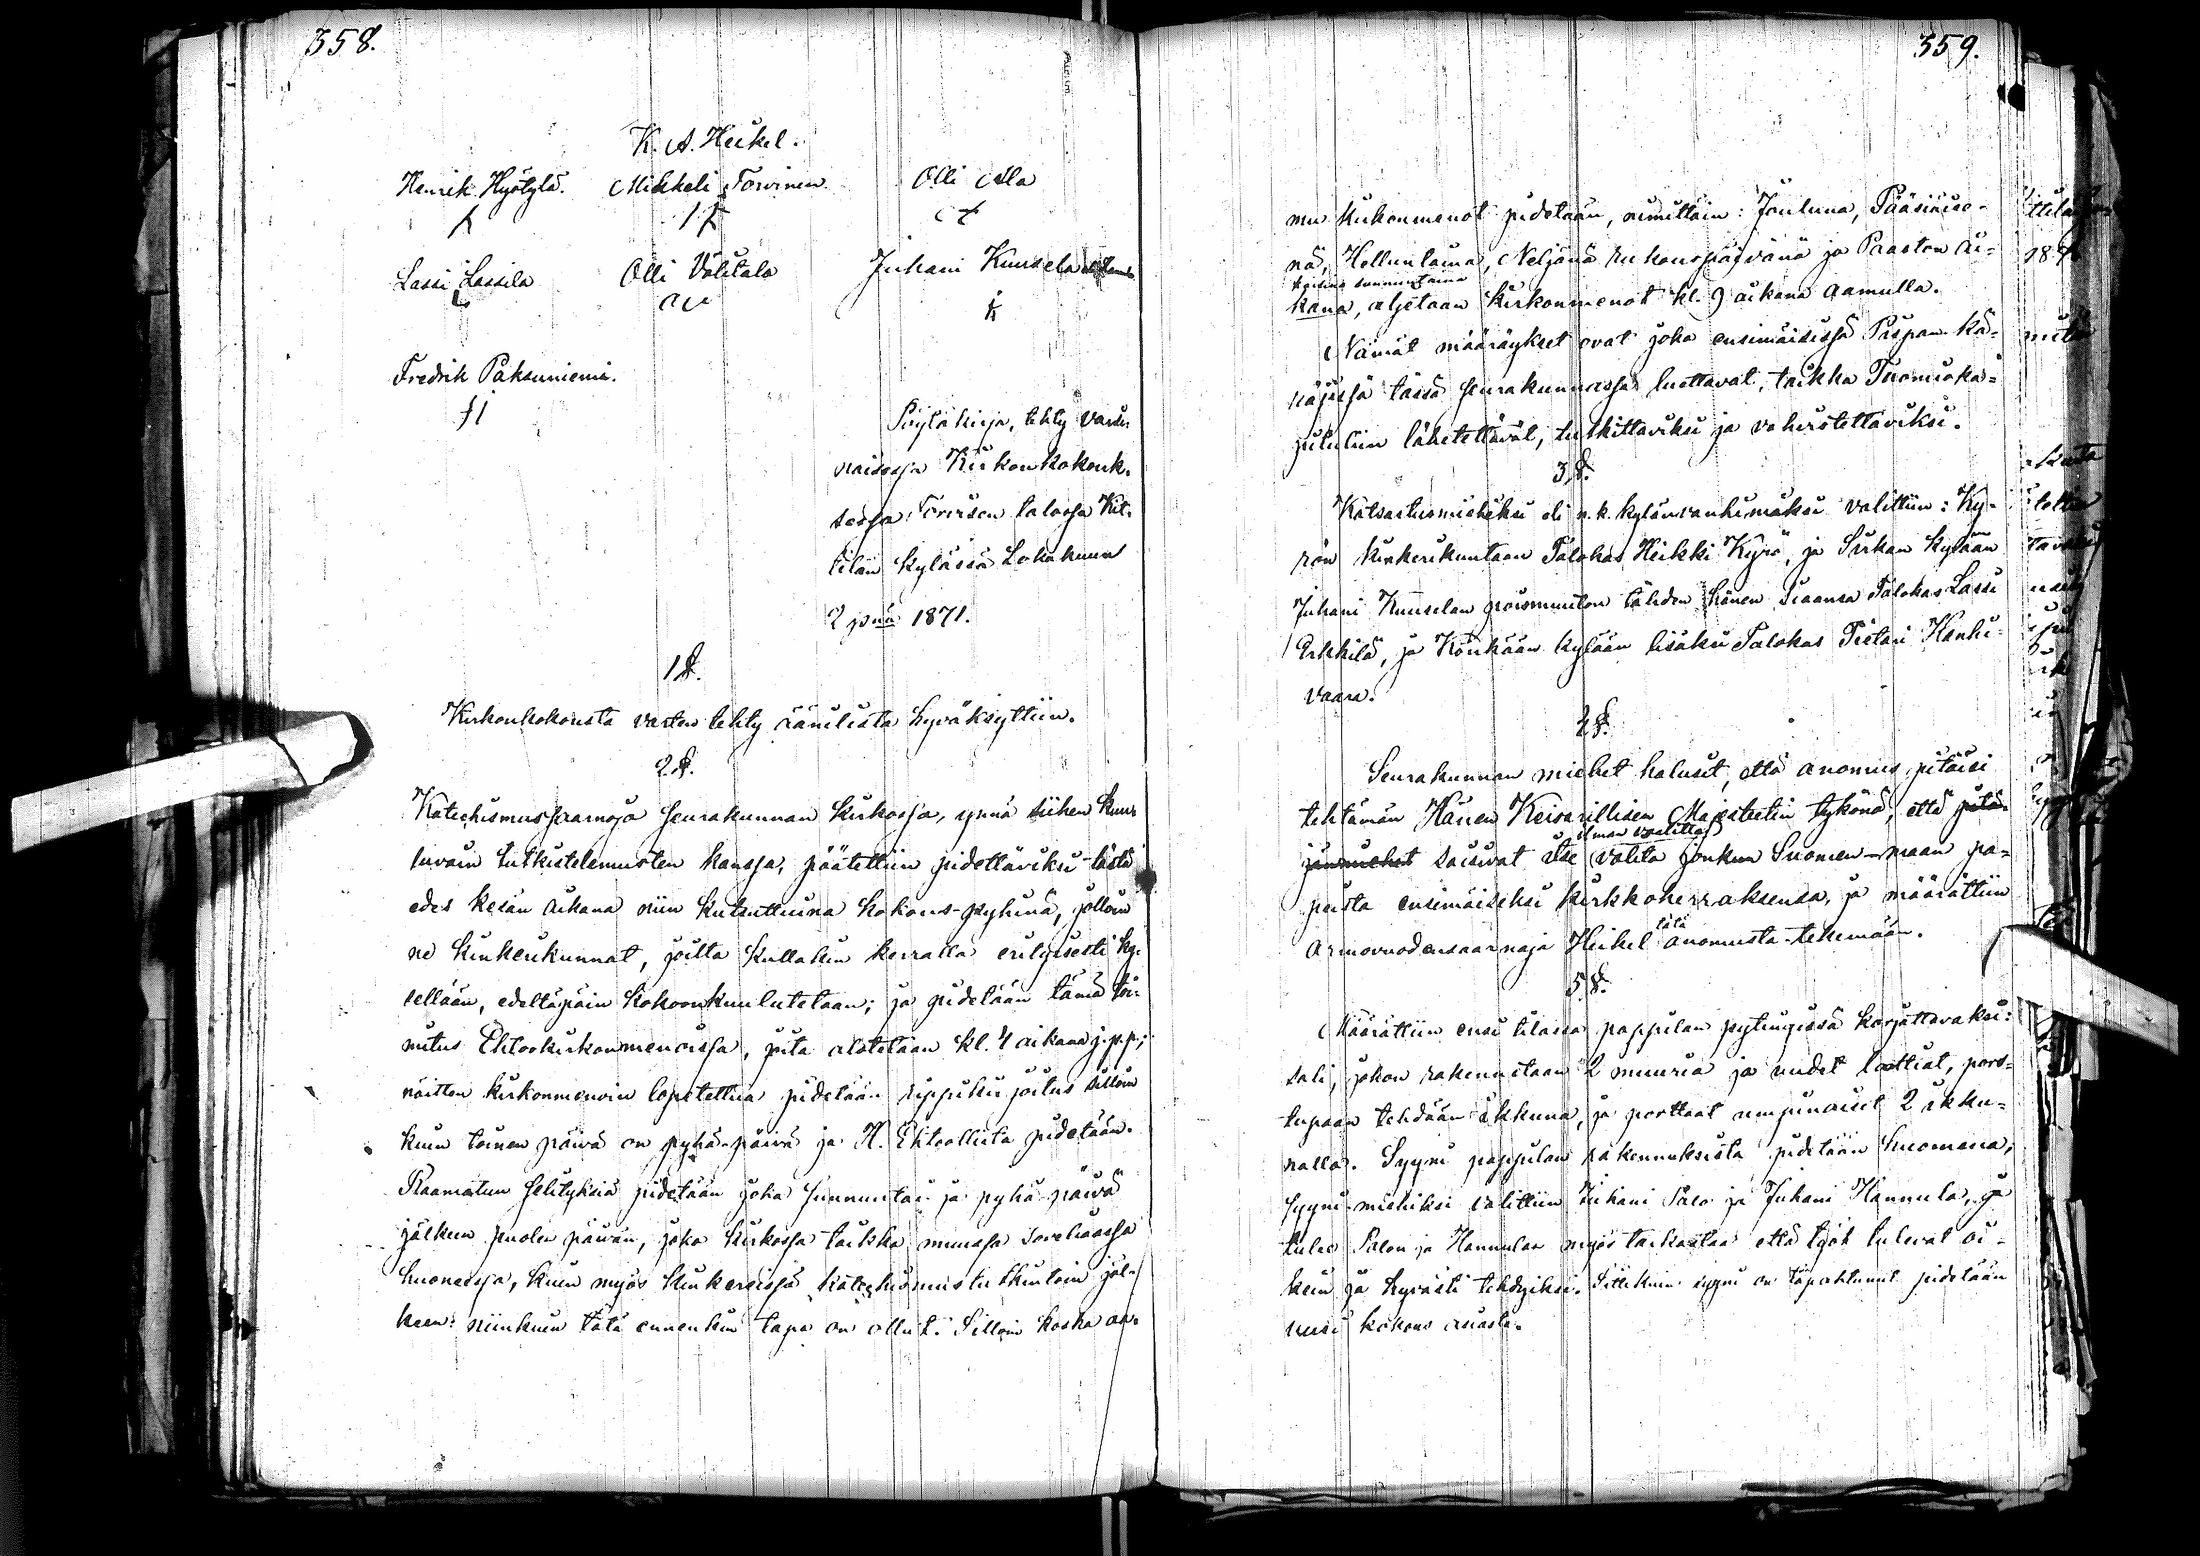 358.
K. A. Heikel.
Henrik Hyötylä. Mikkeli Torvinen. Olli Ala
Lassi Lassila Olli Välitalo Juhani Kuusela
Fredrik Paksuniemi.
Pöytäkirja, tehty varsi-
naisessa Kirkonkokouk-
sessa Torvisen talossa Kit-
tilän kylässä Lokakuun
2 p:nä 1871.
1 §.
Kirkonkokousta varten tehty äänilista hyväksyttiin.
2 §.
Katechismussaarnoja seurakunnan kirkossa, ynnä siihen kuu-
luvain tutkistelemusten kanssa, päätettiin pidettäviksi tästä
edes kesän aikana niin kutsuttuina kokous-pyhinä, jolloin
ne kinkerikunnat, joilta kullakin kerralla erityisesti ky-
sellään, edeltäpäin kokoonkuulutetaan; ja pidetään tämä toi-
mitus Ehtookirkonmenoissa, joita alotetaan kl. 4 aikana j.p.p.;
näitten kirkonmenoin lopetettua pidetään rippikirjoitus silloin
kuin toinen päivä on pyhä-päivä ja H. Ehtoollista pidetään.
Raamatun selityksiä pidetään joka sunnuntai ja pyhä-päivä
jälkeen puolen päivän, joko kirkossa taikka muussa soveliaassa
huoneessa, kuin myös kinkereissä katechismustutkintoin jäl-
keen: niinkuin tätä ennenkin tapa on ollut. Silloin koska aa-
359.
mu kirkonmenot pidetään, nimittäin: Jouluna, Pääsiäise-
nä, Helluntaina, Neljänä rukouspäivänä ja Paaston ai-
kana, aljetaan kirkonmenot kl. 9 aikana aamulla.
Nämät määräykset ovat joko ensimäisissä Piispan-kä-
räjissä tässä seurakunnassa luettavat, taikka Tuomioka-
pituliin lähetettävät, tutkittaviksi ja vahvistettaviksi.
3 §.
Katsastusmiehiksi eli n.k. kylänvanhimmaksi valittiin: Ky-
rön kinkerikuntaan Talokas Heikki Kyrö, ja Sirkan kylään
Juhani Kuuselan poismuuton tähden hänen siaansa Talokas Lassi
Erkkilä, ja Könkään kylään lisäksi Talokas Pietari Hanhi-
vaara.
4 §.
Seurakunnan miehet halusit, että anomus pitäisi
tehtämän Hänen Keisarillisen Majesteetin tykönä, että pitä-
jänmiehet saisivat itse ilman vaalitta valita jonkun Suomen-maan pa-
peista ensimäiseksi kirkkoherraksensa, ja määrättiin
armovuodensaarnaja Heikel tätä anomusta tekemään.
5 §.
Määrättiin ensi tilassa pappilan pytingissä korjattavaksi:
sali, johon rakennetaan 2 muuria ja uudet laattiat, pors-
tupaan tehdään ikkuna, ja porttaat umpinaiset 2 ikku-
nalla. Syyni pappilan rakennuksista pidetään huomena;
syyni-miehiksi valittiin Juhani Palo ja Juhani Hannula, ja
tulee Palon ja Hannulan myös tarkastaa että työt tulevat oi-
kein ja hyvästi tehdyiksi. Sittekuin syyni on tapahtunut pidetään
uusi kokous asiasta.